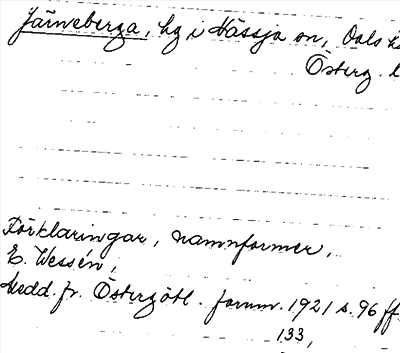 Järneberga, hg i Hässja sn, Dals h
Österg. l
Förklaringar, namnformer,
E. Wessén,
Medd. fr. Östergötl. fornm. 1921 s. 96 ff.
133,